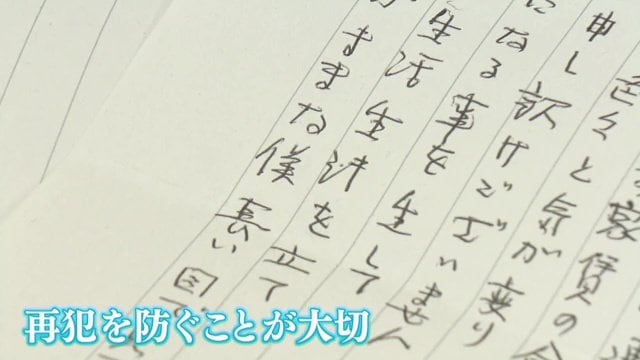 家賃の
色々と気が乗り
申し訳けございません
になる事を生して
生活生計を立て
ままな僕長い
再犯を防ぐことが大切